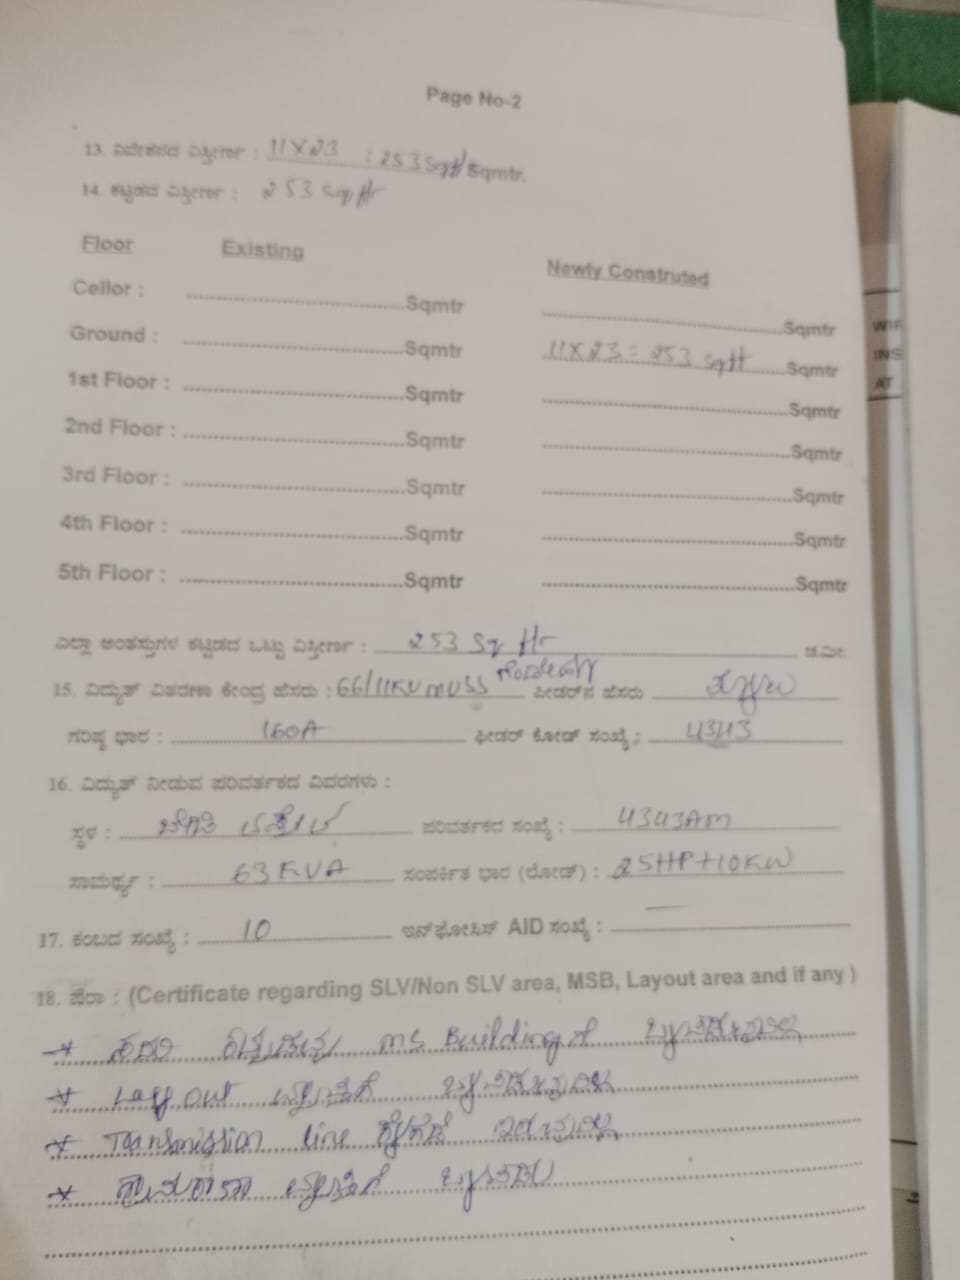 Page No-2
13. ನಿವೇಶನದ ವಿಸ್ತೀರ್ಣ : 11 X 23 : 253 Sqft Sqmtr.
14. ಕಟ್ಟಡದ ವಿಸ್ತೀರ್ಣ : 253 Sqft
Floor Existing Newly Constructed
Cellor : Sqmtr Sqmtr
Ground : Sqmtr 11 X 23 = 253 sqft Sqmtr
1st Floor : Sqmtr Sqmtr
2nd Floor : Sqmtr Sqmtr
3rd Floor : Sqmtr Sqmtr
4th Floor : Sqmtr Sqmtr
5th Floor : Sqmtr Sqmtr
ಎಲ್ಲಾ ಅಂತಸ್ತುಗಳ ಕಟ್ಟಡದ ಒಟ್ಟು ವಿಸ್ತೀರ್ಣ : 253 Sq ft ಚ.ಮೀ.
15. ವಿದ್ಯುತ್ ವಿತರಣಾ ಕೇಂದ್ರ ಹೆಸರು : 66/11KV MUSS ಫೀಡರ್‌ನ ಹೆಸರು
ಗರಿಷ್ಠ ಭಾರ : 160A ಫೀಡರ್ ಕೋಡ್ ಸಂಖ್ಯೆ : 4343
16. ವಿದ್ಯುತ್ ನೀಡುವ ಪರಿವರ್ತಕದ ವಿವರಗಳು :
ಸ್ಥಳ : ಪರಿವರ್ತಕದ ಸಂಖ್ಯೆ :
ಸಾಮರ್ಥ್ಯ : 63 KVA ಸಂಪರ್ಕಿತ ಭಾರ (ಲೋಡ್) : 25HP+10KW
17. ಕಂಬದ ಸಂಖ್ಯೆ : 10 ಇನ್‌ಫೋಸಿಸ್ AID ಸಂಖ್ಯೆ : —
18. ಷರಾ : (Certificate regarding SLV/Non SLV area, MSB, Layout area and if any )
* ಸದರಿ MS Building ಗೆ
* Layout ವ್ಯಾಪ್ತಿಗೆ
* Transmission line ಕೆಳಗಡೆ
* ವ್ಯಾಪ್ತಿಗೆ
WIR
INS
AT